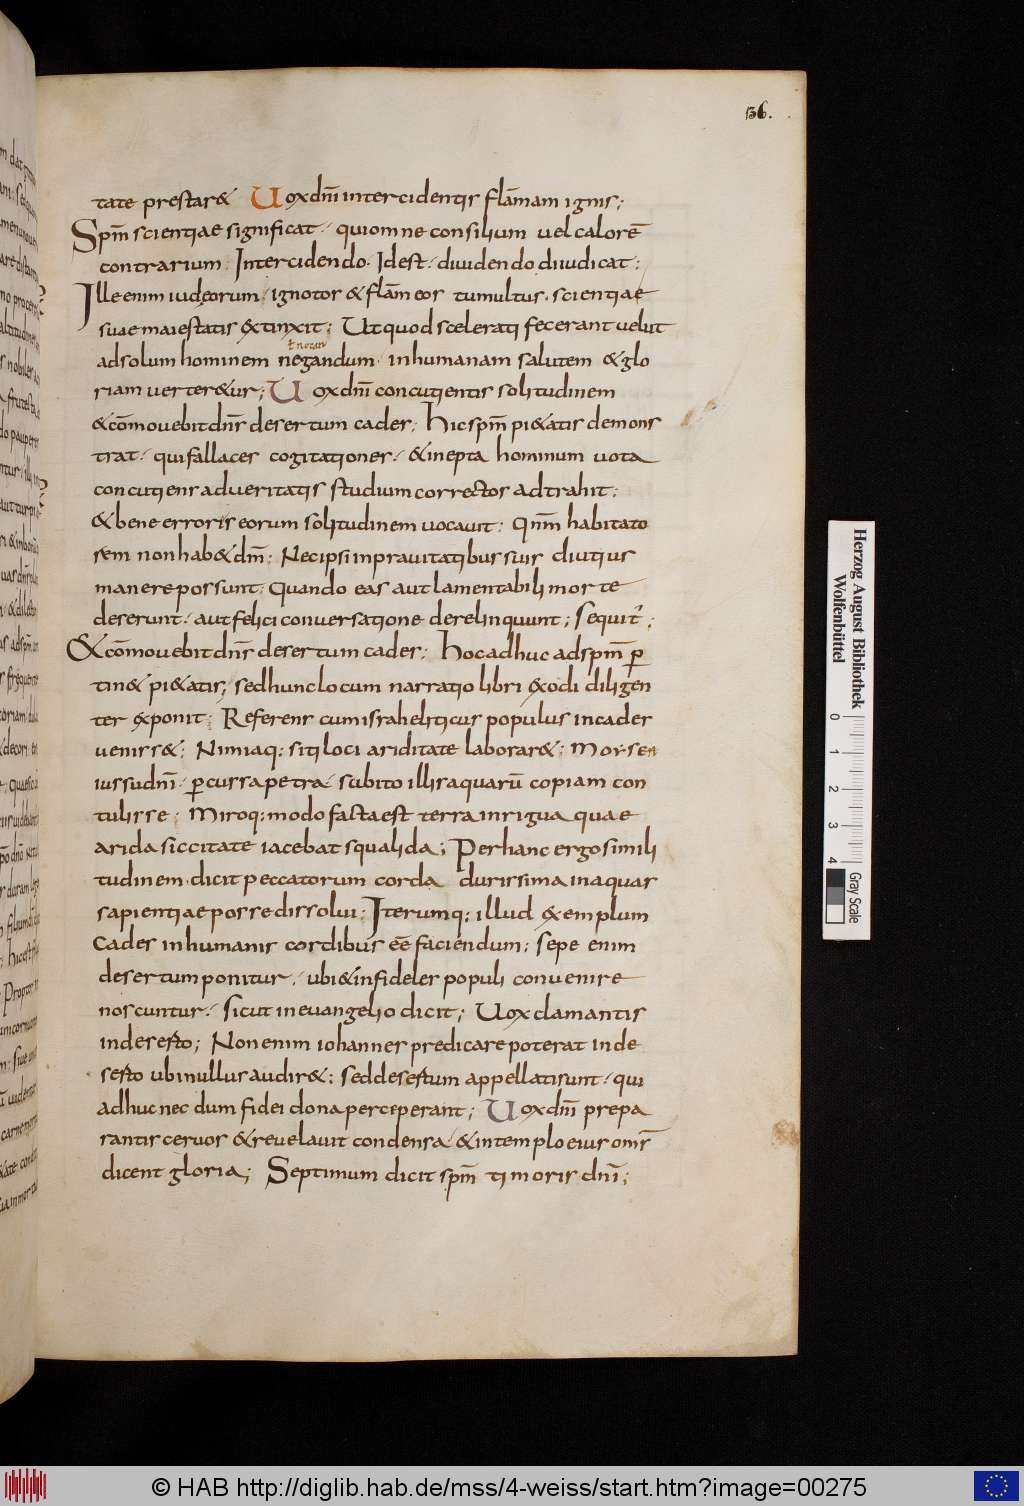 136.
tate prestar& Uox dnī intercidentis flāmam ignis;
Spm̄ scientiae significat· quiomne consilium uel calorē
contrarium· Intercidendo· Idest· diuidendo diiudicat;
Ille enim iudęorum· ignotos & flām eos tumultus· scientiae
suae maiestatis extinxit; Ut quod scelerati fecerant uelut
adsolum hominem negandum· inhumanam salutem & glo
riam uerter&ur; Uox dnī concutientis solitudinem
& cōmouebit dn̄s desertum cades; Hic spm̄ pi&atis demons
trat· qui fallaces cogitationes· & inepta hominum uota
concutiens ad ueritatis studium correctos adtrahit;
& bene erroris eorum solitudinem uocauit; Qm̄ habitato
rem non hab& dm̄; Nec ipsi in prauitatibus suis diutius
manere possunt; Quando eas aut lamentabili morte
deserunt· aut felici conuersatione derelinquunt; Sequit̄;
& cōmouebit dn̄s desertum cades; Hoc adhuc ad spm̄ ꝑ
tin& pi&atis; sed hunc locum narratio libri exodi diligen
ter exponit; Referens cum israheliticus populus in cades
uenirs&; Nimiaq; siti loci ariditate laborar&; Moysen
iussu dnī· ꝑcussa petra· subito illis aquarū copiam con
tulisse; Miroq; modo facta est terra inrigua quae
arida siccitate iacebat squalida; Per hanc ergo simili
tudinem· dicit peccatorum corda durissima in aquas
sapientiae posse dissolui; Iterumq; illud exemplum
Cades in humanis cordibus eē faciendum; sepe enim
desertum ponitur· ubi & infideles populi conuenire
noscuntur· Sicut in euangelio dicit; Uox clamantis
in deserto; Non enim iohannes predicare poterat in de
serto ubi nullus audir&; sed desertum appellati sunt· qui
adhuc nec dum fidei dona perceperant; Uox dnī prepa
rantis ceruos & reuelauit condensa· & in templo eius om̄s
dicent gloria; Septimum dicit spm̄ timoris dnī;
Herzog August Bibliothek
Wolfenbüttel
0 1 2 3 4
Gray Scale
© HAB http://diglib.hab.de/mss/4-weiss/start.htm?image=00275